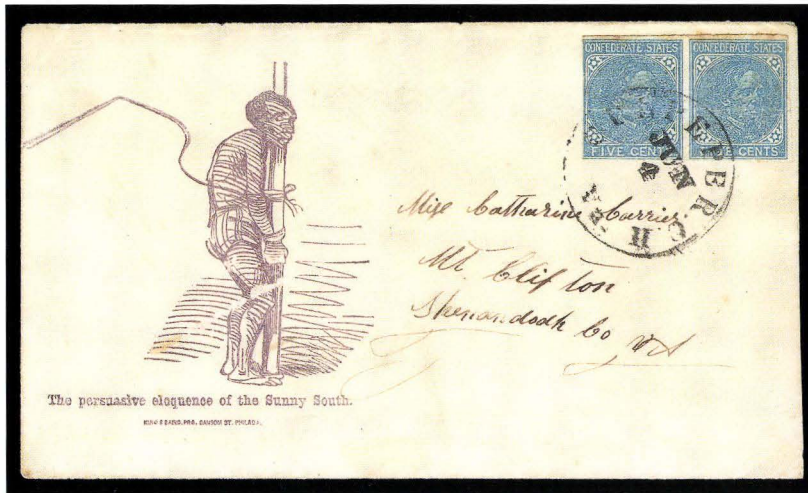 CONFEDERATE STATES CONFEDERATE STATES
FIVE CENTS CENTS
JUN
4
Miss Catharine Carrier
Mt. Clifton
Shenandoah Co VA
The persuasive eloquence of the Sunny South.
KING & BAIRD, PRS. SANSOM ST. PHILADA.